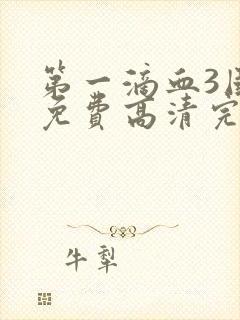 第一滴血3
免费高清完
牛犁